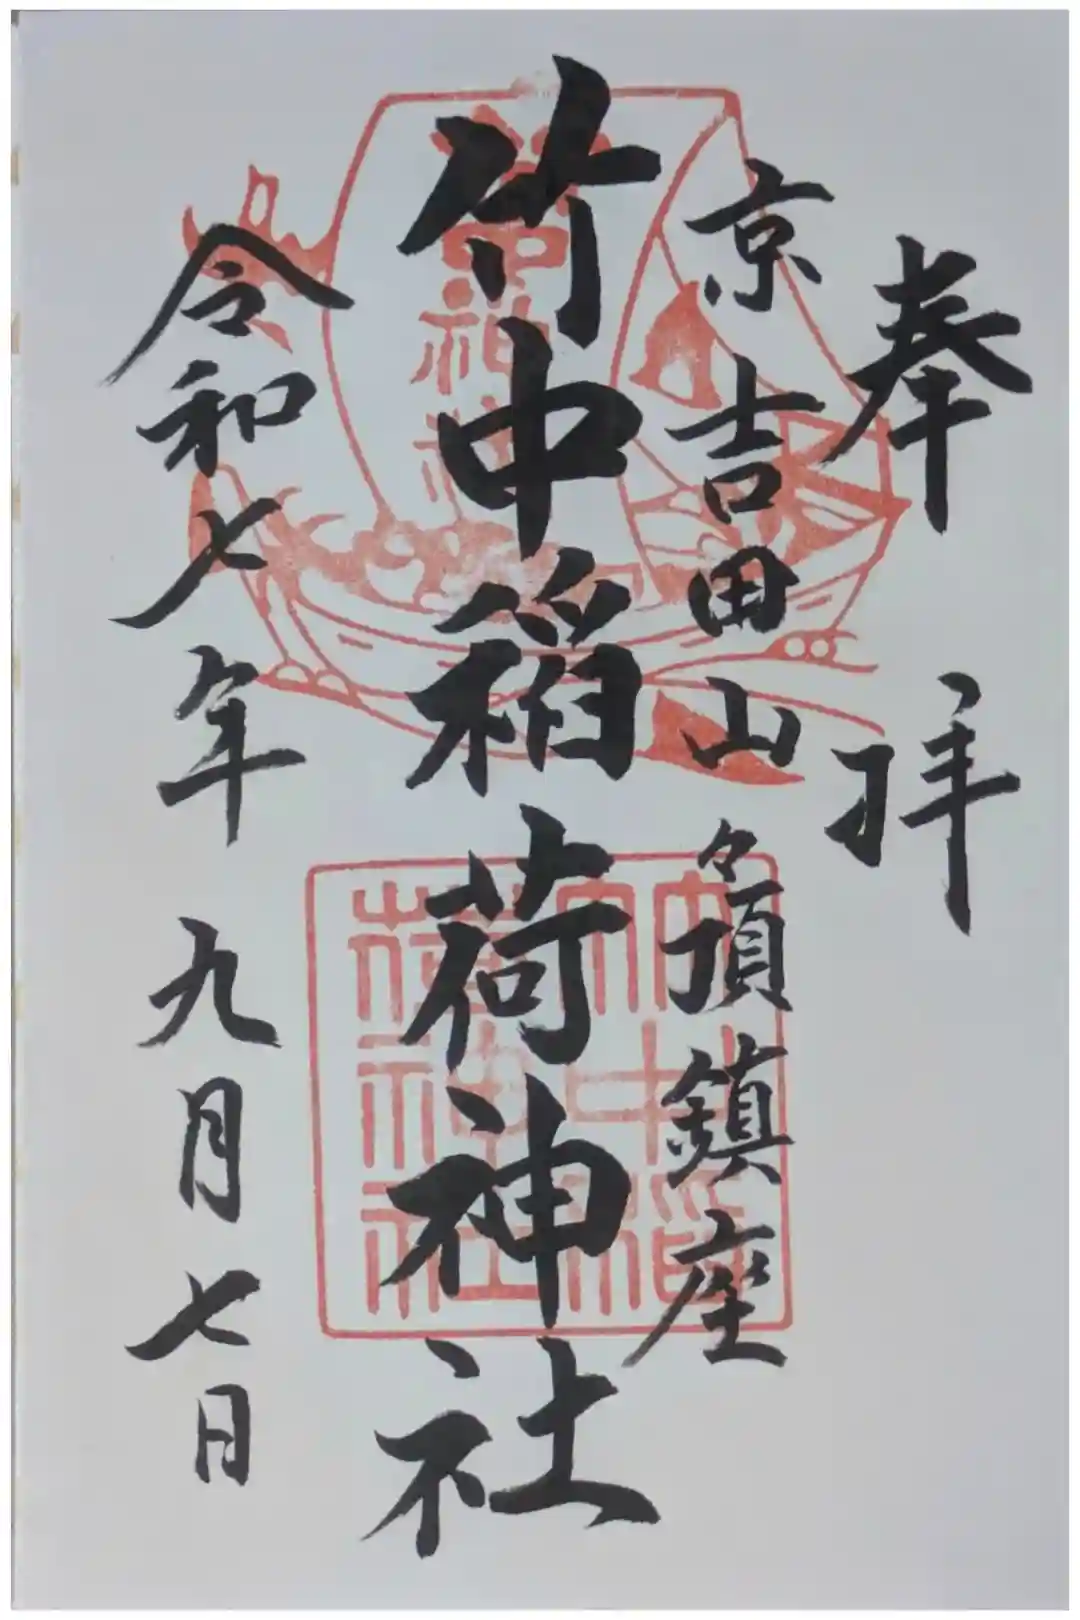 奉拝
京吉田山々頂鎮座
竹中稲荷神社
令和七年九月七日
竹中稲
荷神社